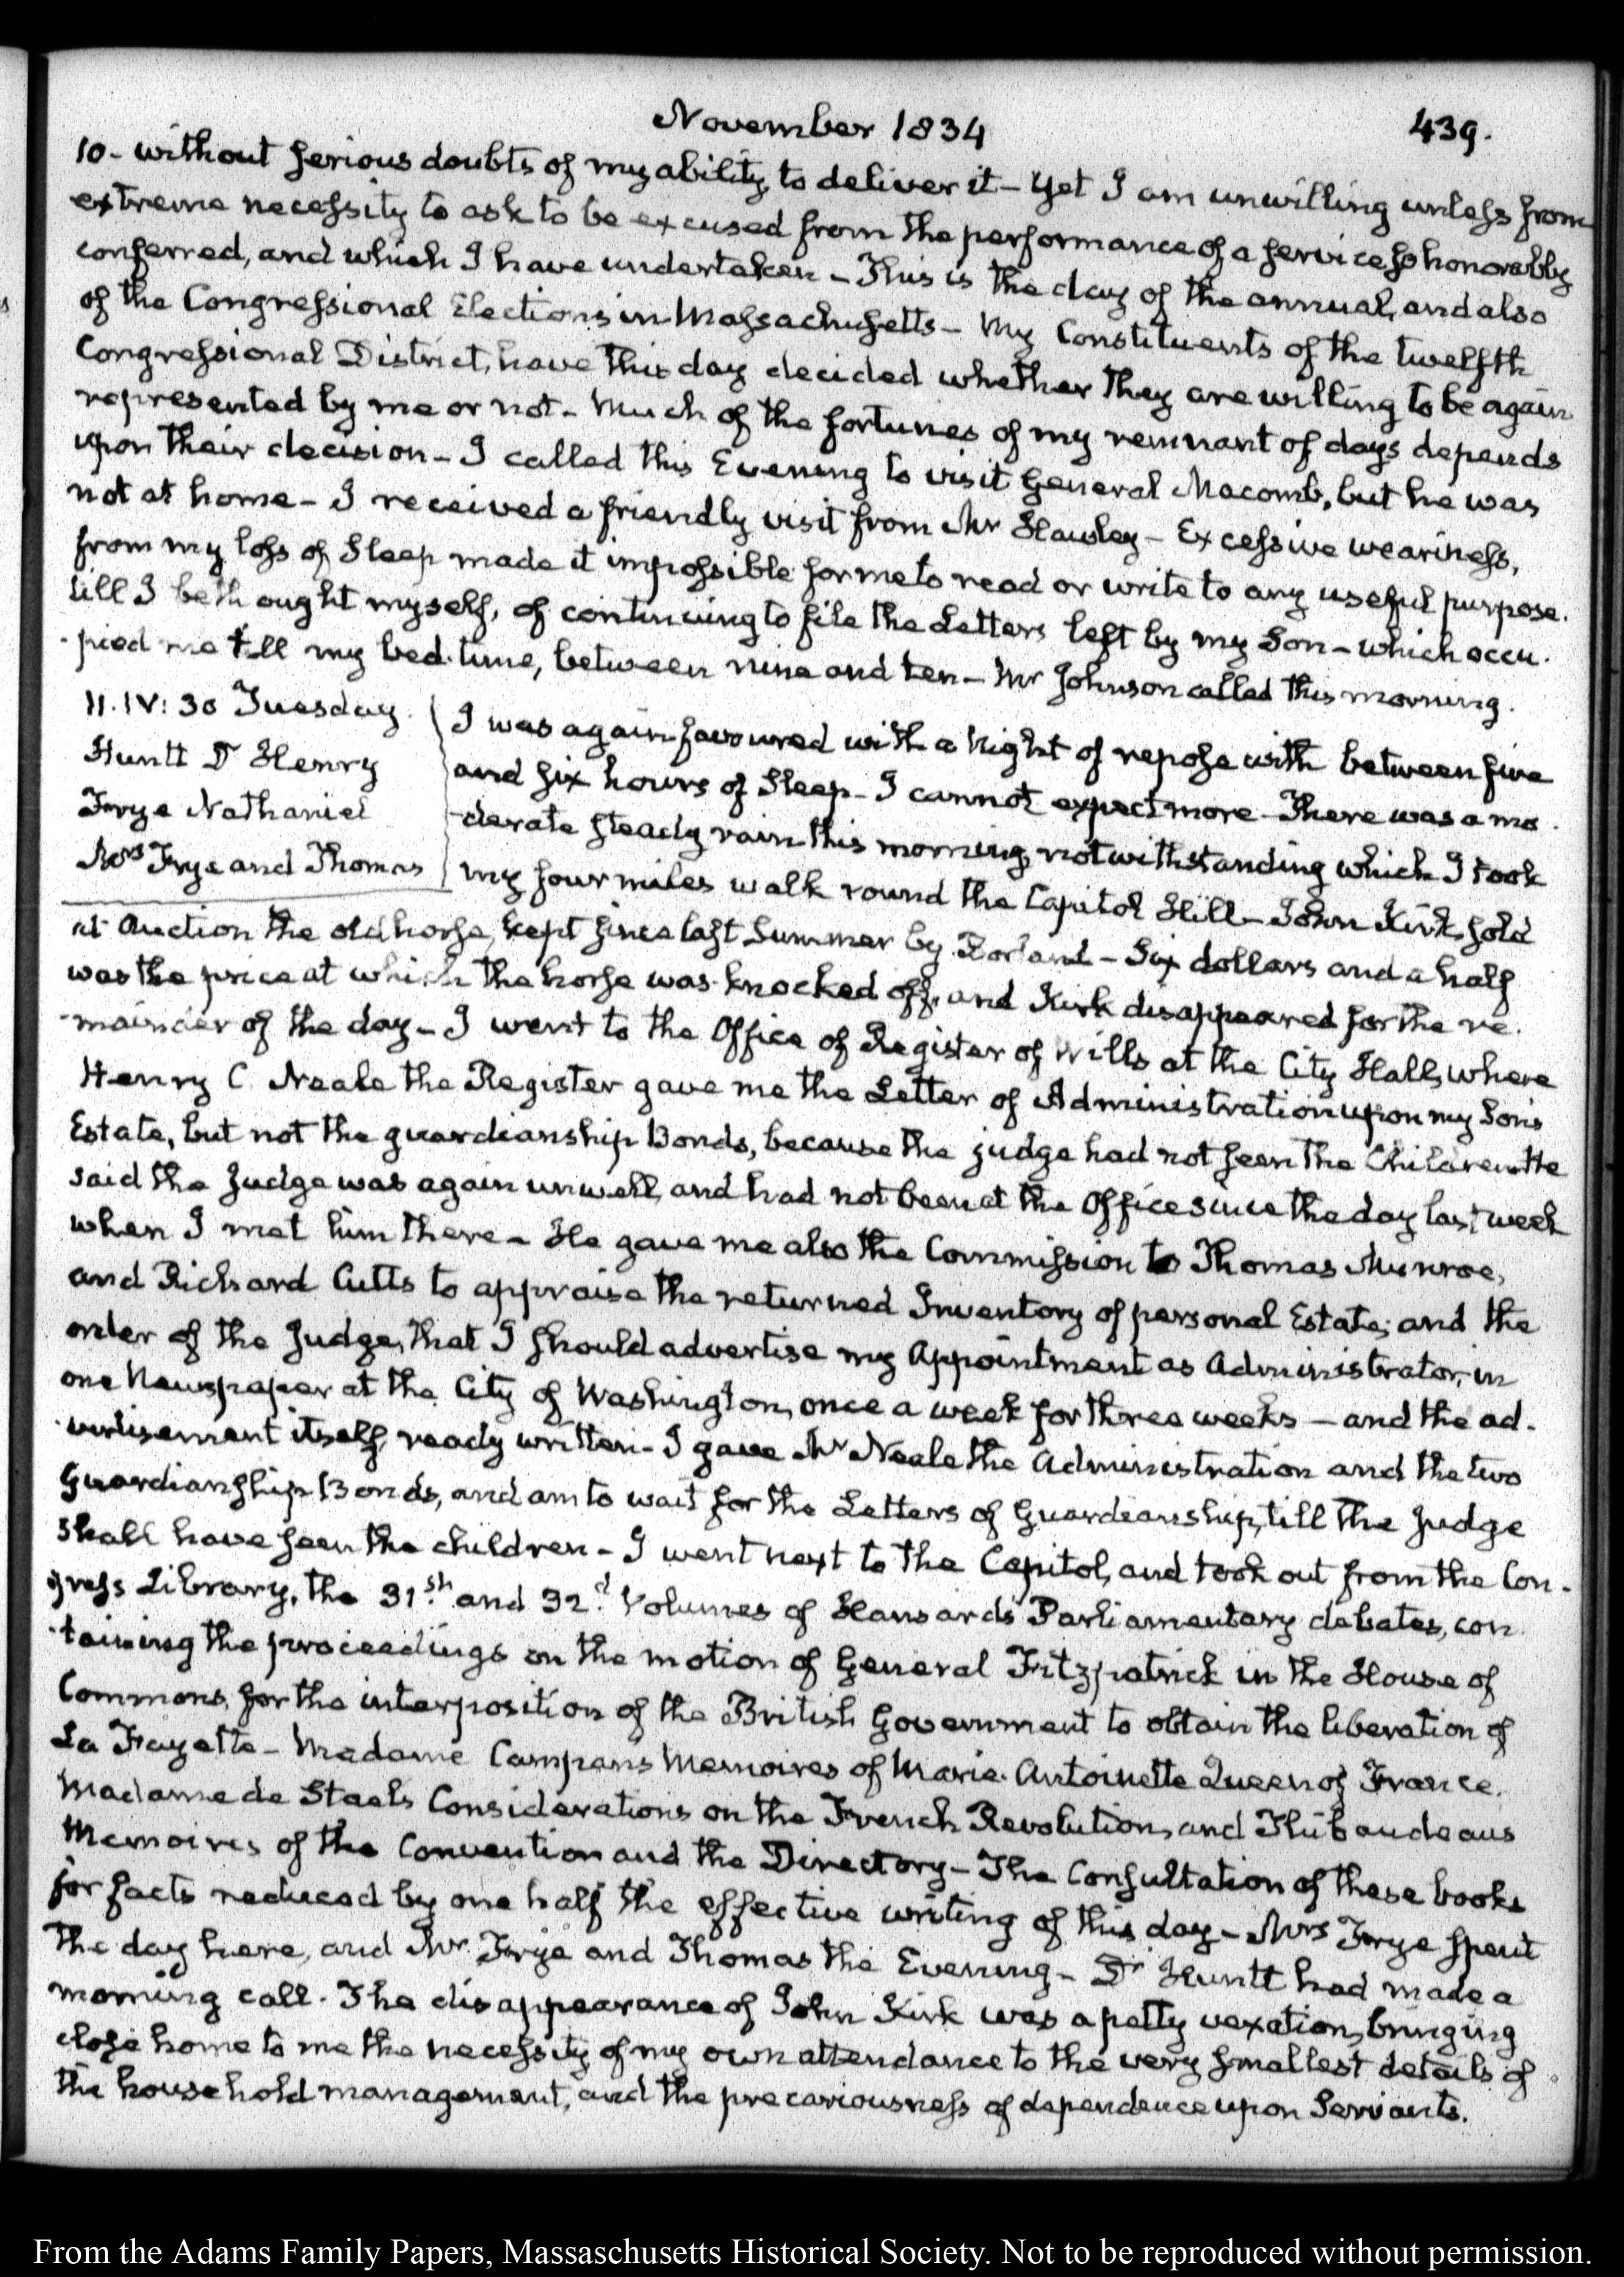 November 1834
439.
10- without serious doubts of my ability, to deliver it - Yet I am unwilling unless from
extreme necessity to ask to be excused from the performance of a service, so honorably
conferred, and which I have undertaken - This is the day of the annual, and also
of the Congressional Elections in Massachusetts - My Constituents of the twelfth
Congressional District, have this day decided whether they are willing to be again
represented by me or not - Much of the fortunes of my remnant of days depends
upon their decision - I called this Evening to visit General Macomb, but he was
not at home - I received a friendly visit from Mr Hawley - Excessive weariness,
from my loss of Sleep made it impossible for me to read or write to any useful purpose.
till I bethought myself, of continuing to file the Letters left by my Son - which occu-
-pied me till my bed-time, between nine and ten - Mr Johnson called this morning.
11. IV: 30 Tuesday.
Huntt Dr Henry
Frye Nathaniel
Mrs Frye and Thomas
I was again favoured with a Night of repose with between five
and six hours of Sleep - I cannot expect more - There was a mo-
-derate steady rain this morning, notwithstanding which I took
my four miles walk round the Capitol Hill - John Kirk sold
at Auction the old horse, kept since last Summer by - Six dollars and a half
was the price at which the horse was knocked off, and Kirk disappeared for the re-
-mainder of the day - I went to the Office of Register of Wills at the City Hall, where
Henry C. Neale the Register gave me the Letter of Administration upon my Son's
Estate, but not the guardianship Bonds, because the judge had not seen the Children - He
said the Judge was again unwell, and had not been at the Office since the day last week
when I met him there - He gave me also the Commission to Thomas Munroe,
and Richard Cutts to appraise the returned Inventory of personal Estate; and the
order of the Judge, that I should advertise my Appointment as Administrator, in
one Newspaper at the City of Washington, once a week for three weeks - and the ad-
-vertisement itself, ready written - I gave Mr Neale the Administration and the two
Guardianship Bonds, and am to wait for the Letters of Guardianship, till the Judge
shall have seen the children - I went next to the Capitol, and took out from the Con-
gress Library, the 31st and 32d Volumes of Hansards Parliamentary debates, con-
-taining the proceedings on the motion of General Fitzpatrick in the House of
Commons, for the interposition of the British Government to obtain the liberation of
La Fayette - Madame Campans Memoires of Marie Antoinette Queen of France.
Madame de Staels Considerations on the French Revolution, and Thibaudeaus
Memoires of the Convention and the Directory - The Consultation of these books
for facts reduced by one half the effective writing of this day - Mrs Frye spent
the day here, and Mr Frye and Thomas the Evening - Dr Huntt had made a
morning call. The disappearance of John Kirk was a petty vexation, bringing
close home to me the necessity of my own attendance to the very smallest details of
the household management, and the precariousness of dependence upon Servants.
From the Adams Family Papers, Massachusetts Historical Society. Not to be reproduced without permission.